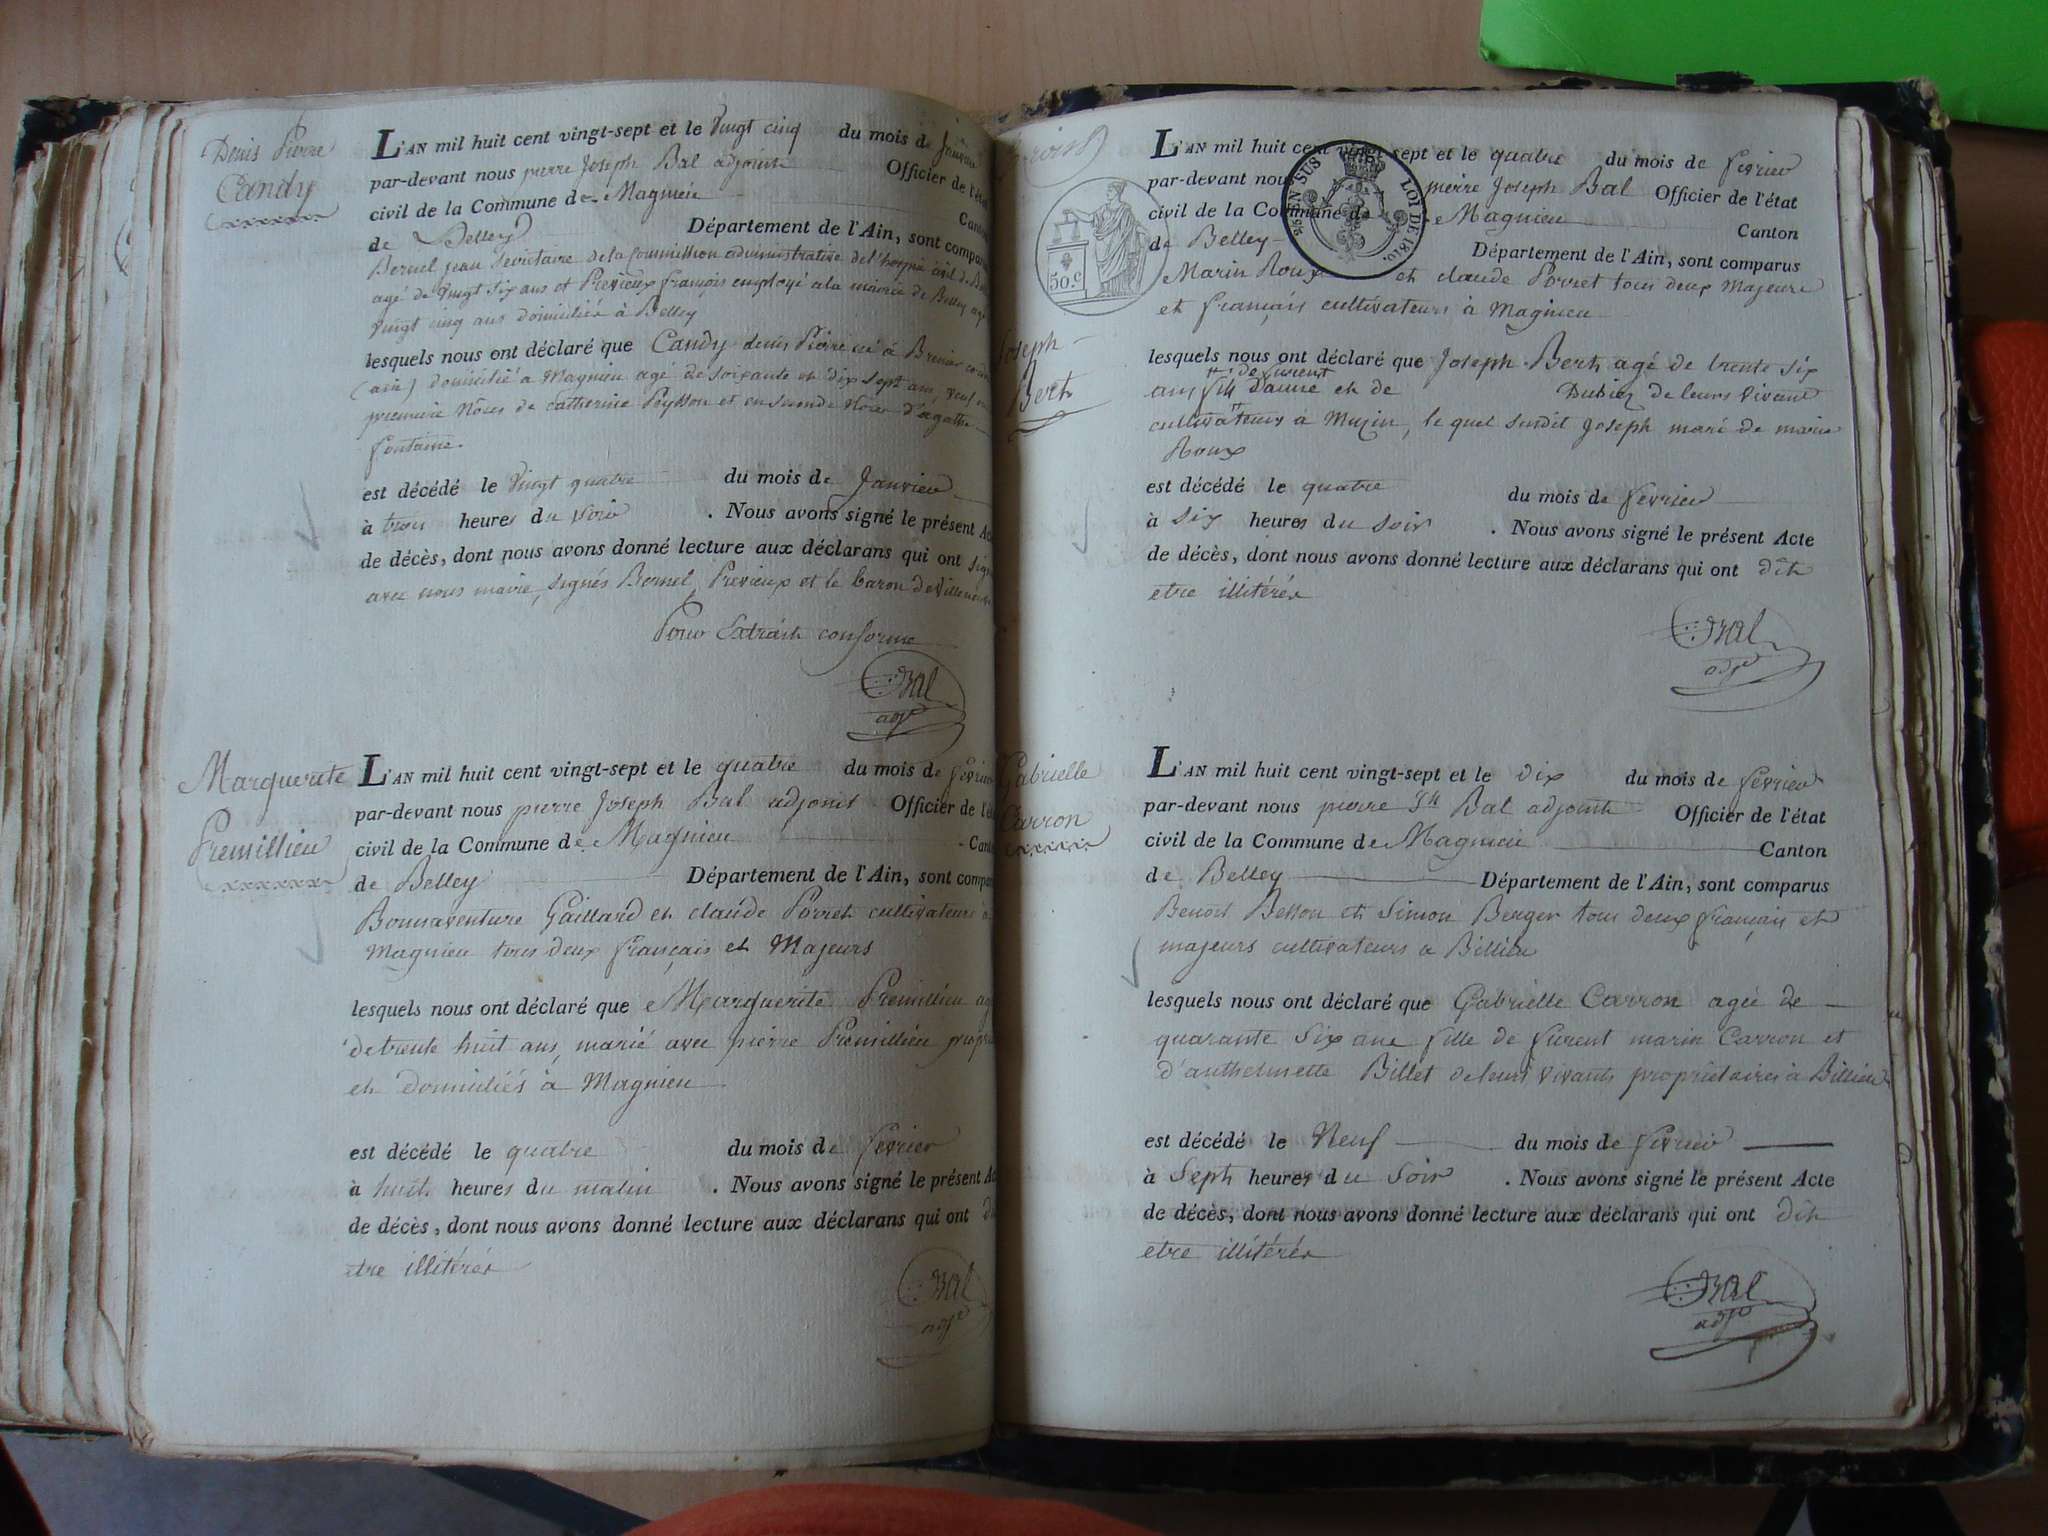 Denis Pierre
Candy
L'AN mil huit cent vingt-sept et le Vingt cinq du mois de Janvier
par-devant nous pierre Joseph Bal adjoint Officier de l'état
civil de la Commune de Magnieu Canton
de Belley Département de l'Ain, sont comparus
Bernel jean Secrétaire de la Commission administrative de l'hospice civil de
agé de Vingt Six ans et Previeux françois employé a la mairie de Belley agé
Vingt cinq ans domiciliés à Belley
lesquels nous ont déclaré que Candy denis Pierre né à Brenier
(ain) domicilié a Magnieu agé de Soixante et dix Sept ans, veuf en
premiere Nôces de catherine Peysson et en Seconde Nôces d'agathe
fontaine.
est décédé le Vingt quatre du mois de Janvier
à trois heures du soir . Nous avons signé le présent Acte
de décès, dont nous avons donné lecture aux déclarans qui ont signé
avec nous maire, signés Bernel, Previeux et le baron de Villeneuve
Pour Extrait conforme
Bal
adjt
Marguerite
Premillieu
L'AN mil huit cent vingt-sept et le quatre du mois de fevrier
par-devant nous pierre Joseph Bal adjoint Officier de l'état
civil de la Commune de Magnieu Canton
de Belley Département de l'Ain, sont comparus
Bonnaventure Gaillard et claude Porret cultivateurs a
Magnieu tous deux français et Majeurs
lesquels nous ont déclaré que Marguerite Premillieu
de trente huit ans, marié avec pierre Premillieu
et domiciliés à Magnieu
est décédé le quatre du mois de fevrier
à huit heures du matin . Nous avons signé le présent Acte
de décès, dont nous avons donné lecture aux déclarans qui ont dit
etre illitérés
Bal
adjt
50.c
EN SUS
LOI DE 1816.
Joseph
Bert
L'AN mil huit cent vingt-sept et le quatre du mois de fevrier
par-devant nous pierre Joseph Bal Officier de l'état
civil de la Commune de Magnieu Canton
de Belley Département de l'Ain, sont comparus
Marin Roux et claude Porret tous deux Majeurs
et français cultivateurs à Magnieu
lesquels nous ont déclaré que Joseph Bert agé de trente six
ans fils de furent et de Dubiez de leurs vivant
cultivateurs a Muzin, le quel Sudit Joseph marié de marie
Roux
est décédé le quatre du mois de fevrier
à six heures du soir . Nous avons signé le présent Acte
de décès, dont nous avons donné lecture aux déclarans qui ont dit
etre illitérés
Bal
adjt
Gabrielle
Carron
L'AN mil huit cent vingt-sept et le dix du mois de fevrier
par-devant nous pierre Jh Bal adjoint Officier de l'état
civil de la Commune de Magnieu Canton
de Belley Département de l'Ain, sont comparus
Benoît Besson et Simon Berger tous deux français et
majeurs cultivateurs a Billieu
lesquels nous ont déclaré que Gabrielle Carron agée de
quarante Six ans fille de furent marin Carron et
d'anthelmette Billet de leurs vivants propriétaires à Billieu
est décédé le Neuf du mois de fevrier
à Sept heures du Soir . Nous avons signé le présent Acte
de décès, dont nous avons donné lecture aux déclarans qui ont dit
etre illitérés
Bal
adjt